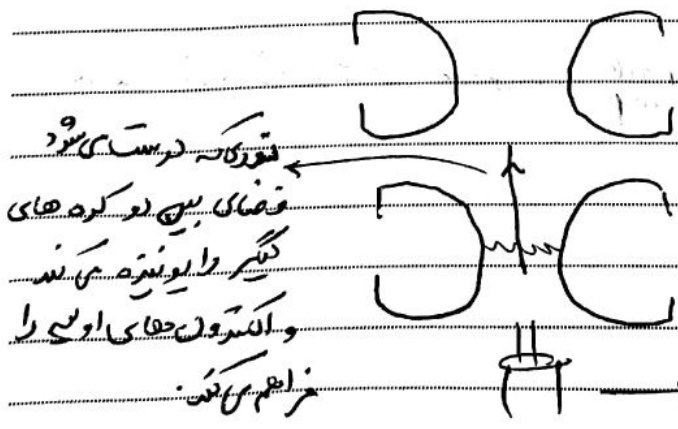 نوری که درست می شود
فضای بین دو کره های
گیر را یونیزه می کند
و الکترون های اولیه را
فراهم می کند.